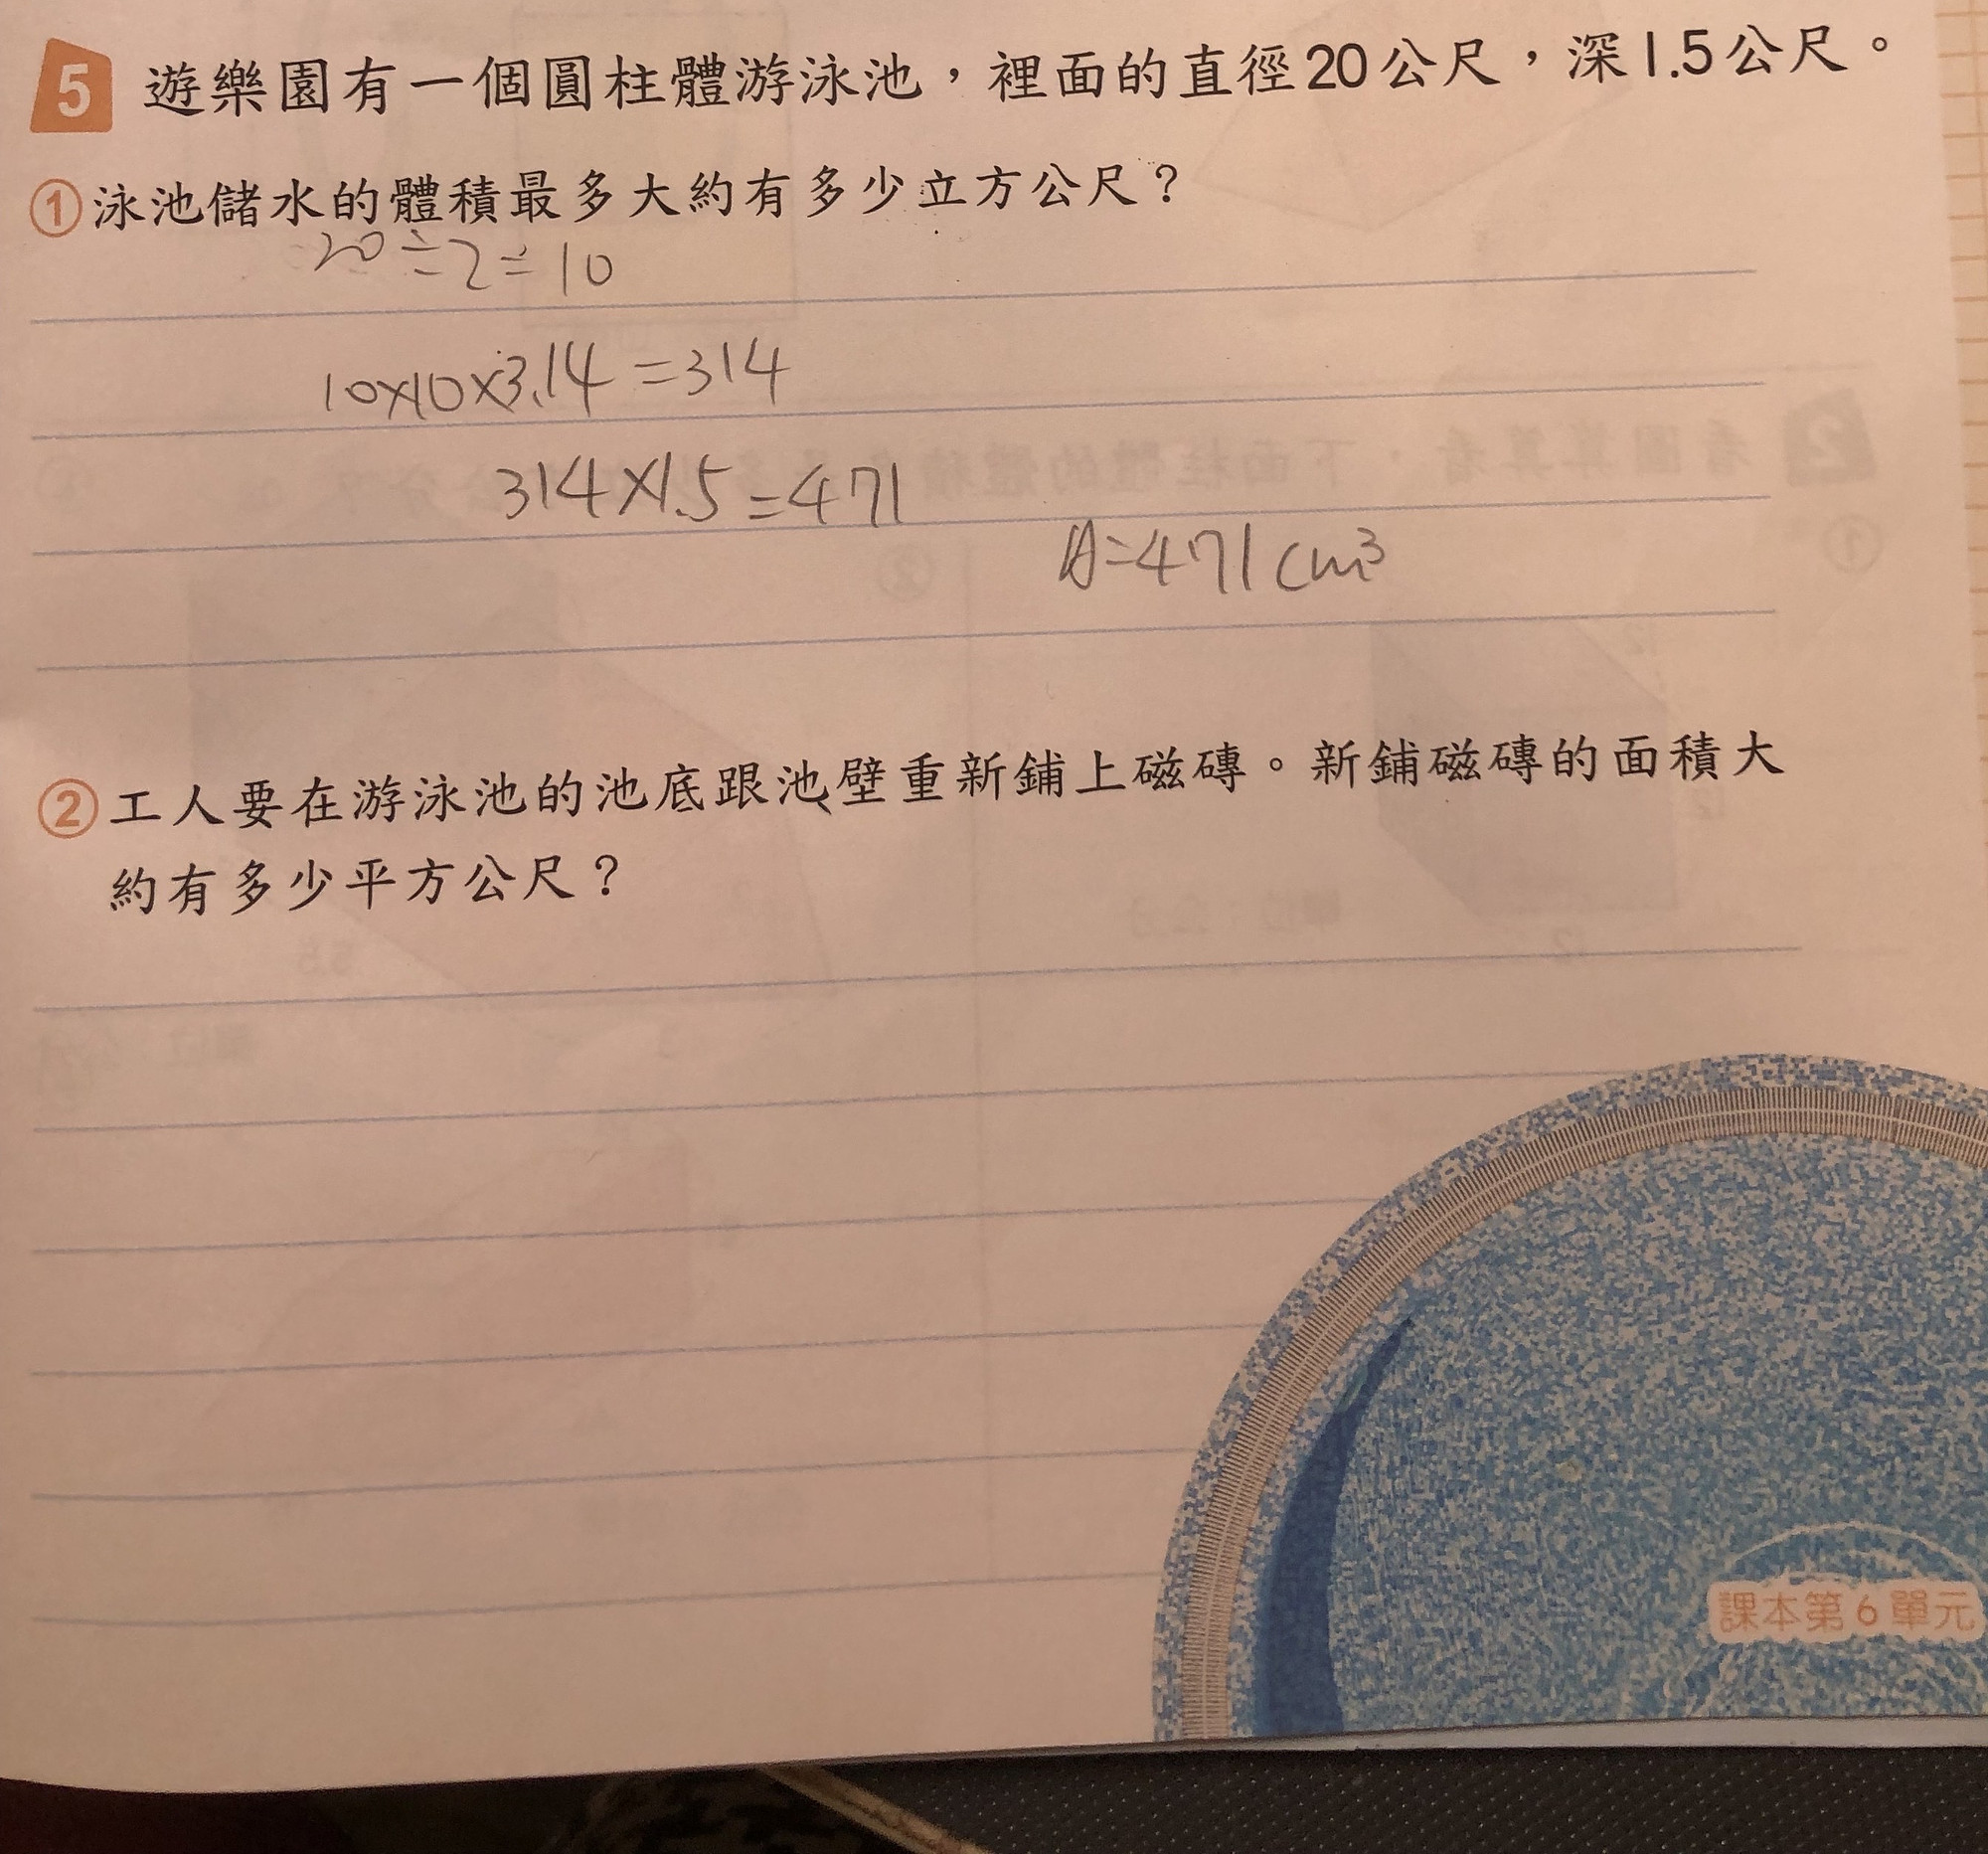 5 遊樂園有一個圓柱體游泳池，裡面的直徑20公尺，深1.5公尺。
①泳池儲水的體積最多大約有多少立方公尺？
20÷2=10
10×10×3.14=314
314×1.5=471
A=471cm³
②工人要在游泳池的池底跟池壁重新鋪上磁磚。新鋪磁磚的面積大
約有多少平方公尺？
課本第6單元